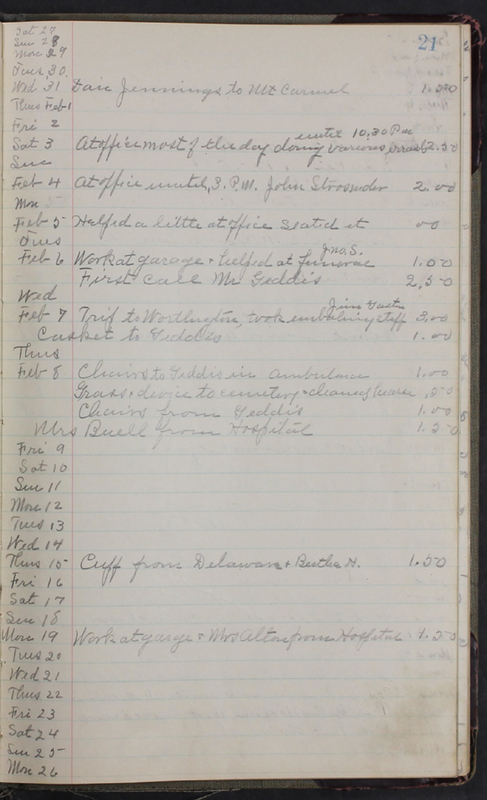 21
Sat 27
Sun 28
Mon 29
Tues, 30.
Wed 31 Jennings to Mt Carmel 1.50
Thus Feb 1
Fri 2
until 10,30 P.m
Sat 3 At office most of the day doing various 2.50
Sun
Feb 4 At office until, 3. P.M. John Strosnider 2.00
Mon 5
Feb 5 Helped a little at office 00
Tues
Jno. S.
Feb 6 Work at garage & helped at funeral 1.00
First call Mr Geddis 2,50
Wed
Jim
Feb 7 Trip to Worthington, took embalming stuff 3.00
Casket to Geddes 1.00
Thus
Feb 8 Chairs to Geddis in ambulance 1.00
Grass & device to cemetery & cleaned hearse .50
Chairs from Geddis 1.00
Mrs Buell from Hospital 1.50
Fri 9
Sat 10
Sun 11
Mon 12
Tues 13
Wed 14
Thus 15 Cuff from Delaware & Bertha H. 1.50
Fri 16
Sat 17
Sun 18
Mon 19 Work at garge & Mrs Alton from Hospital 1.50
Tues 20
Wed 21
Thus 22
Fri 23
Sat 24
Sun 25
Mon 26